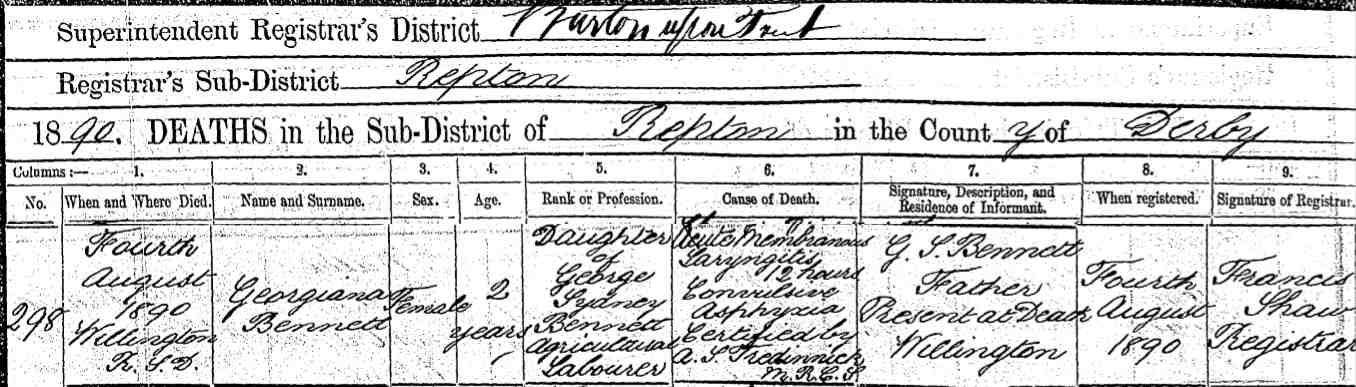 Superintendent Registrar's District Burton upon Trent
Registrar's Sub-District Repton
1890. DEATHS in the Sub-District of Repton in the County of Derby
Columns :— 1. 2. 3. 4. 5. 6. 7. 8. 9.
No. When and Where Died. Name and Surname. Sex. Age. Rank or Profession. Cause of Death. Signature, Description, and Residence of Informant. When registered. Signature of Registrar.
298
Fourth
August
1890
Willington
R. S. D.
Georgiana
Bennett
Female
2
years
Daughter
of
George
Sydney
Bennett
Agricultural
Labourer
Acute Membranous
Laryngitis
12 hours
Convulsive
Asphyxia
Certified by
A. S. Tredinnick
M. R. C. S
G. S. Bennett
Father
Present at Death
Willington
Fourth
August
1890
Francis
Shaw
Registrar